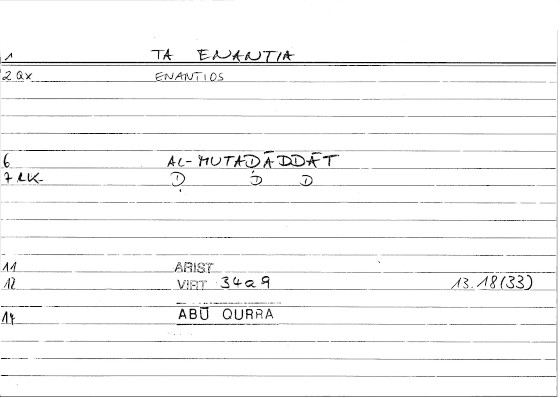 1 TA ENANTIA
2 QX ENANTIOS
6 AL-MUTADĀDDĀT
7 RK Ḍ D D
11 ARIST
12 VIRT 34a9 13.18(33)
14 ABŪ QURRA